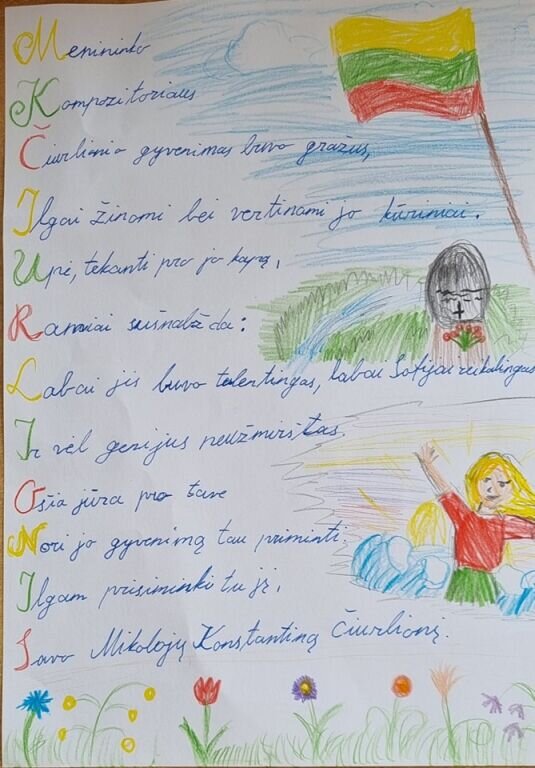 Menininko
Kompozitoriaus
Čiurlionio gyvenimas buvo gražus,
Ilgai žinomi bei vertinami jo kūriniai.
Upė, tekanti pro jo kapą,
Ramiai sušnabžda:
Labai jis buvo talentingas, labai Sofijai reikalingas
Ir vėl genijus neužmirštas.
Ošia jūra pro tave
Nori jo gyvenimą tau priminti.
Ilgam prisiminki tu jį,
Savo Mikalojų Konstantiną Čiurlionį.